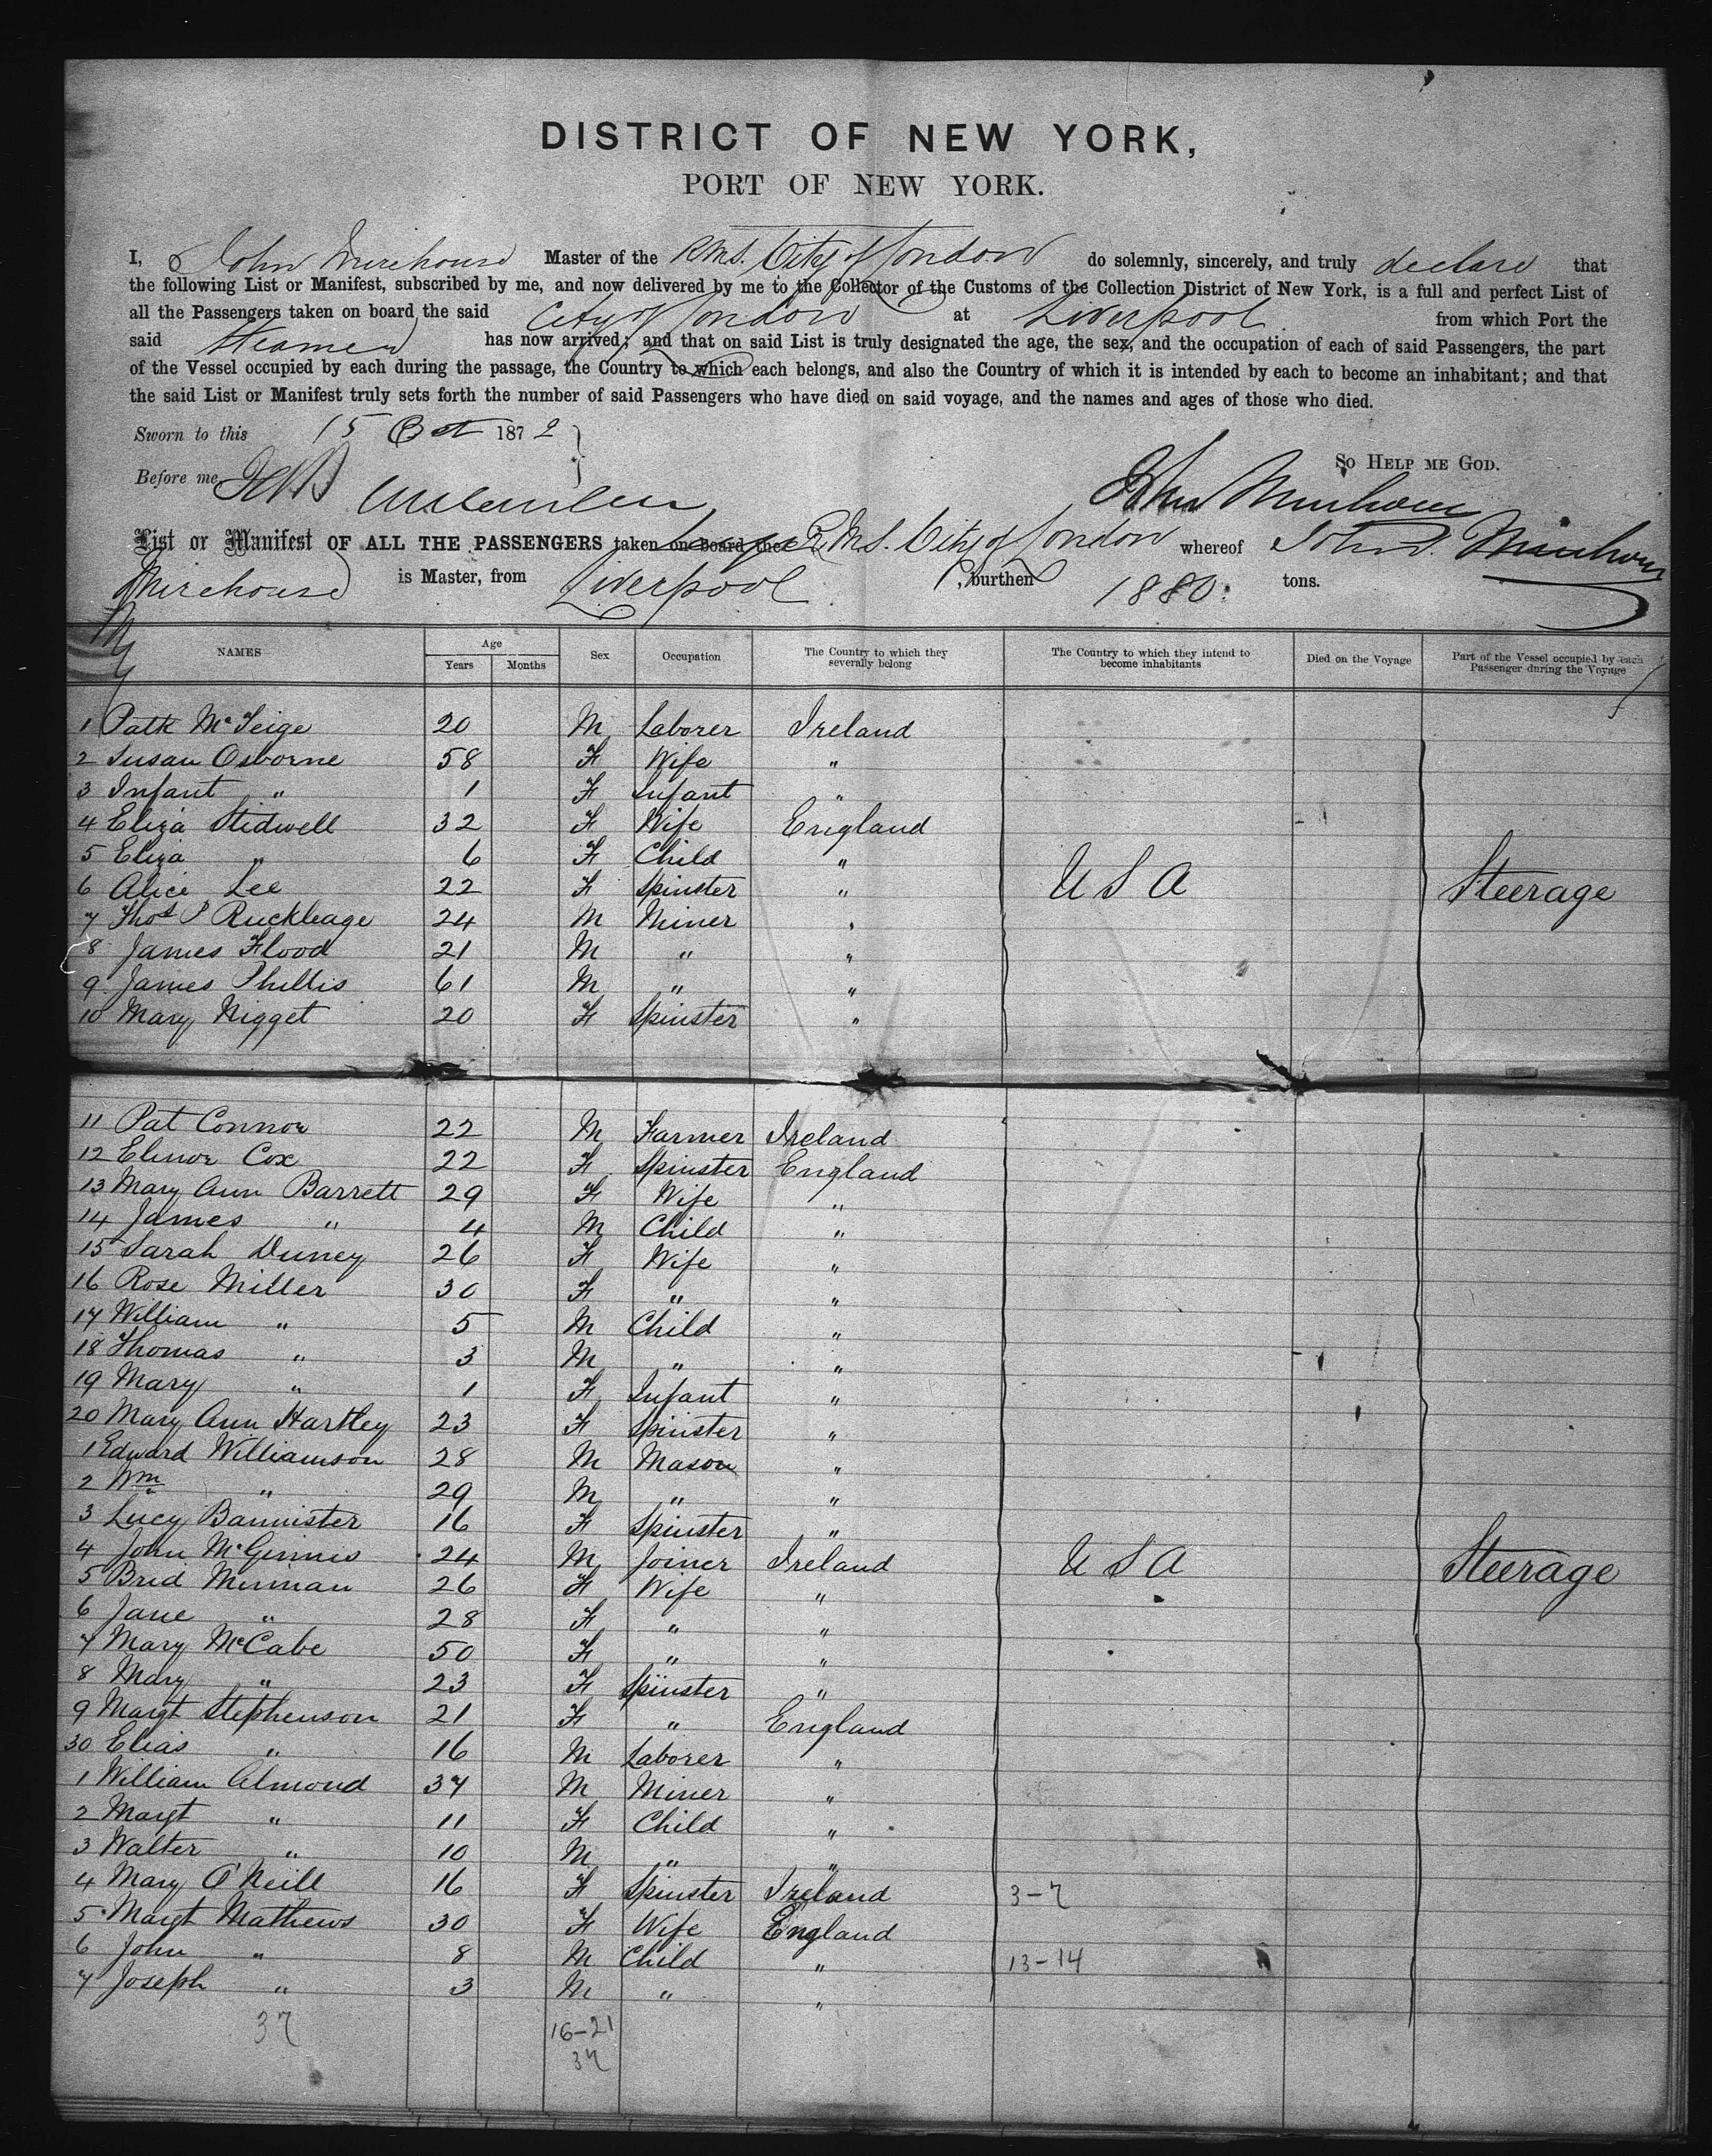 DISTRICT OF NEW YORK,
PORT OF NEW YORK.
I, John Mirehouse Master of the RMS. City of London do solemnly, sincerely, and truly declare that
the following List or Manifest, subscribed by me, and now delivered by me to the Collector of the Customs of the Collection District of New York, is a full and perfect List of
all the Passengers taken on board the said City of London at Liverpool from which Port the
said Steamer has now arrived; and that on said List is truly designated the age, the sex, and the occupation of each of said Passengers, the part
of the Vessel occupied by each during the passage, the Country to which each belongs, and also the Country of which it is intended by each to become an inhabitant; and that
the said List or Manifest truly sets forth the number of said Passengers who have died on said voyage, and the names and ages of those who died.
Sworn to this 15 Oct 1872
So HELP ME GOD.
Before me John Mirehouse
List or Manifest OF ALL THE PASSENGERS taken on board the RMS. City of London whereof John Mirehouse
Mirehouse is Master, from Liverpool, burthen 1880. tons.
NAMES Age Years Months Sex Occupation The Country to which they severally belong The Country to which they intend to become inhabitants Died on the Voyage Part of the Vessel occupied by each Passenger during the Voyage
1 Patk McTeige 20 M Laborer Ireland
2 Susan Osborne 58 F Wife "
3 Infant " 1 F Infant "
4 Eliza Stidwell 32 F Wife England
5 Eliza " 6 F Child "
6 Alice Lee 22 F Spinster " U S A Steerage
7 Thos P Ruckleage 24 M Miner "
8 James Flood 21 M " "
9 James Phillis 61 M " "
10 Mary Nigget 20 F Spinster "
11 Pat Connor 22 M Farmer Ireland
12 Elinor Cox 22 F Spinster England
13 Mary Ann Barrett 29 F Wife "
14 James " 4 M Child "
15 Sarah Duney 26 F Wife "
16 Rose Miller 30 F " "
17 William " 5 M Child "
18 Thomas " 3 M " "
19 Mary " 1 F Infant "
20 Mary Ann Hartley 23 F Spinster "
1 Edward Williamson 28 M Mason "
2 Wm " 29 M " "
3 Lucy Bannister 16 F Spinster "
4 John McGinnis 24 M Joiner Ireland U S A Steerage
5 Brid Murnan 26 F Wife "
6 Jane " 28 F " "
7 Mary McCabe 50 F " "
8 Mary " 23 F Spinster "
9 Margt Stephenson 21 F " England
30 Elias " 16 M Laborer "
1 William Almond 37 M Miner "
2 Margt " 11 F Child "
3 Walter " 10 M " "
4 Mary O'Neill 16 F Spinster Ireland 3-7
5 Margt Mathews 30 F Wife England
6 John " 8 M Child " 13-14
7 Joseph " 3 M " "
37 16-21
37